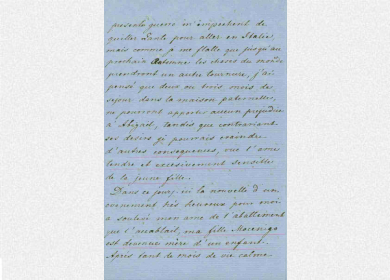 presente guerre m'empechent de
quiller Zante pour aller en Italie,
mais comme je me flatte que jusqu'au
prochain Automne les choses du monde
prendront un autre tournure, j'ai
pensé que deux ou trois mois de
sejour dans la maison paternelle,
ne pourront apporter aucun prejudice
à Abigail, tandis que contrariant
ses desirs je pourrais craindre
d'autres consequences, vue l'ame
tendre et excessivement sensible
de la jeune fille.
Dans ce jours-ci la nouvelle d'un
evenement très heureux pour moi
a soulevé mon ame de l'abattement
que l'accablait, ma fille Mocenigo
est devenue mère d'un enfant.
Après tant de mois de vie calme